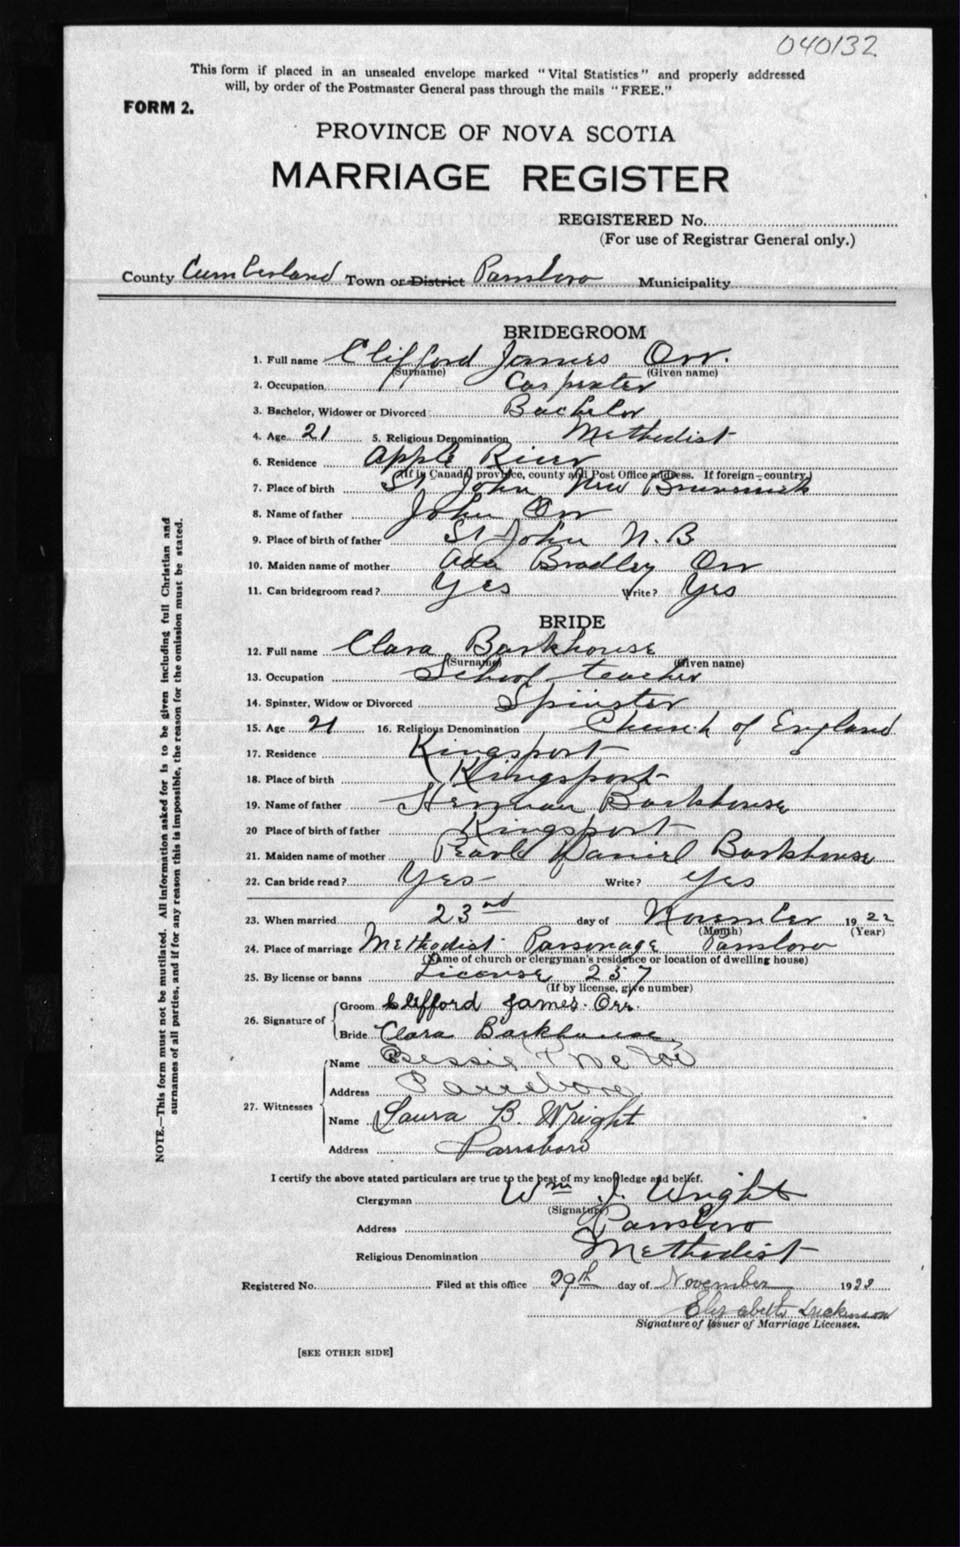 040132
This form if placed in an unsealed envelope marked "Vital Statistics" and properly addressed
will, by order of the Postmaster General pass through the mails "FREE."
FORM 2.
PROVINCE OF NOVA SCOTIA
MARRIAGE REGISTER
REGISTERED No.
(For use of Registrar General only.)
County Cumberland Town or District Parrsboro Municipality
BRIDEGROOM
1. Full name Clifford James Orr.
(Surname) (Given name)
2. Occupation Carpenter
3. Bachelor, Widower or Divorced Bachelor
4. Age 21 5. Religious Denomination Methodist
6. Residence Apple River
(If in Canada, province, county and Post Office address. If foreign—country.)
7. Place of birth St John New Brunswick
8. Name of father John Orr
9. Place of birth of father St John N.B
10. Maiden name of mother Ada Bradley Orr
11. Can bridegroom read? Yes Write? Yes
BRIDE
12. Full name Clara Barkhouse
(Surname) (Given name)
13. Occupation School teacher
14. Spinster, Widow or Divorced Spinster
15. Age 21 16. Religious Denomination Church of England
17. Residence Kingsport
18. Place of birth Kingsport
19. Name of father Herman Barkhouse
20 Place of birth of father Kingsport
21. Maiden name of mother Pearl Daniel Barkhouse
22. Can bride read? Yes Write? Yes
23. When married 23rd day of November 1922
(Month) (Year)
24. Place of marriage Methodist Parsonage Parrsboro
(Name of church or clergyman's residence or location of dwelling house)
25. By license or banns License 257
(If by license, give number)
26. Signature of
Groom Clifford James Orr.
Bride Clara Barkhouse
27. Witnesses
Name Bessie
Address Parrsboro
Name Laura B. Wright
Address Parrsboro
I certify the above stated particulars are true to the best of my knowledge and belief.
Clergyman Wm J. Wright
(Signature)
Address Parrsboro
Religious Denomination Methodist
Registered No. Filed at this office 29th day of November 1922
Elizabeth Dickinson
Signature of Issuer of Marriage Licenses.
[SEE OTHER SIDE]
NOTE.—This form must not be mutilated. All information asked for is to be given including full Christian and
surnames of all parties, and if for any reason this is impossible, the reason for the omission must be stated.